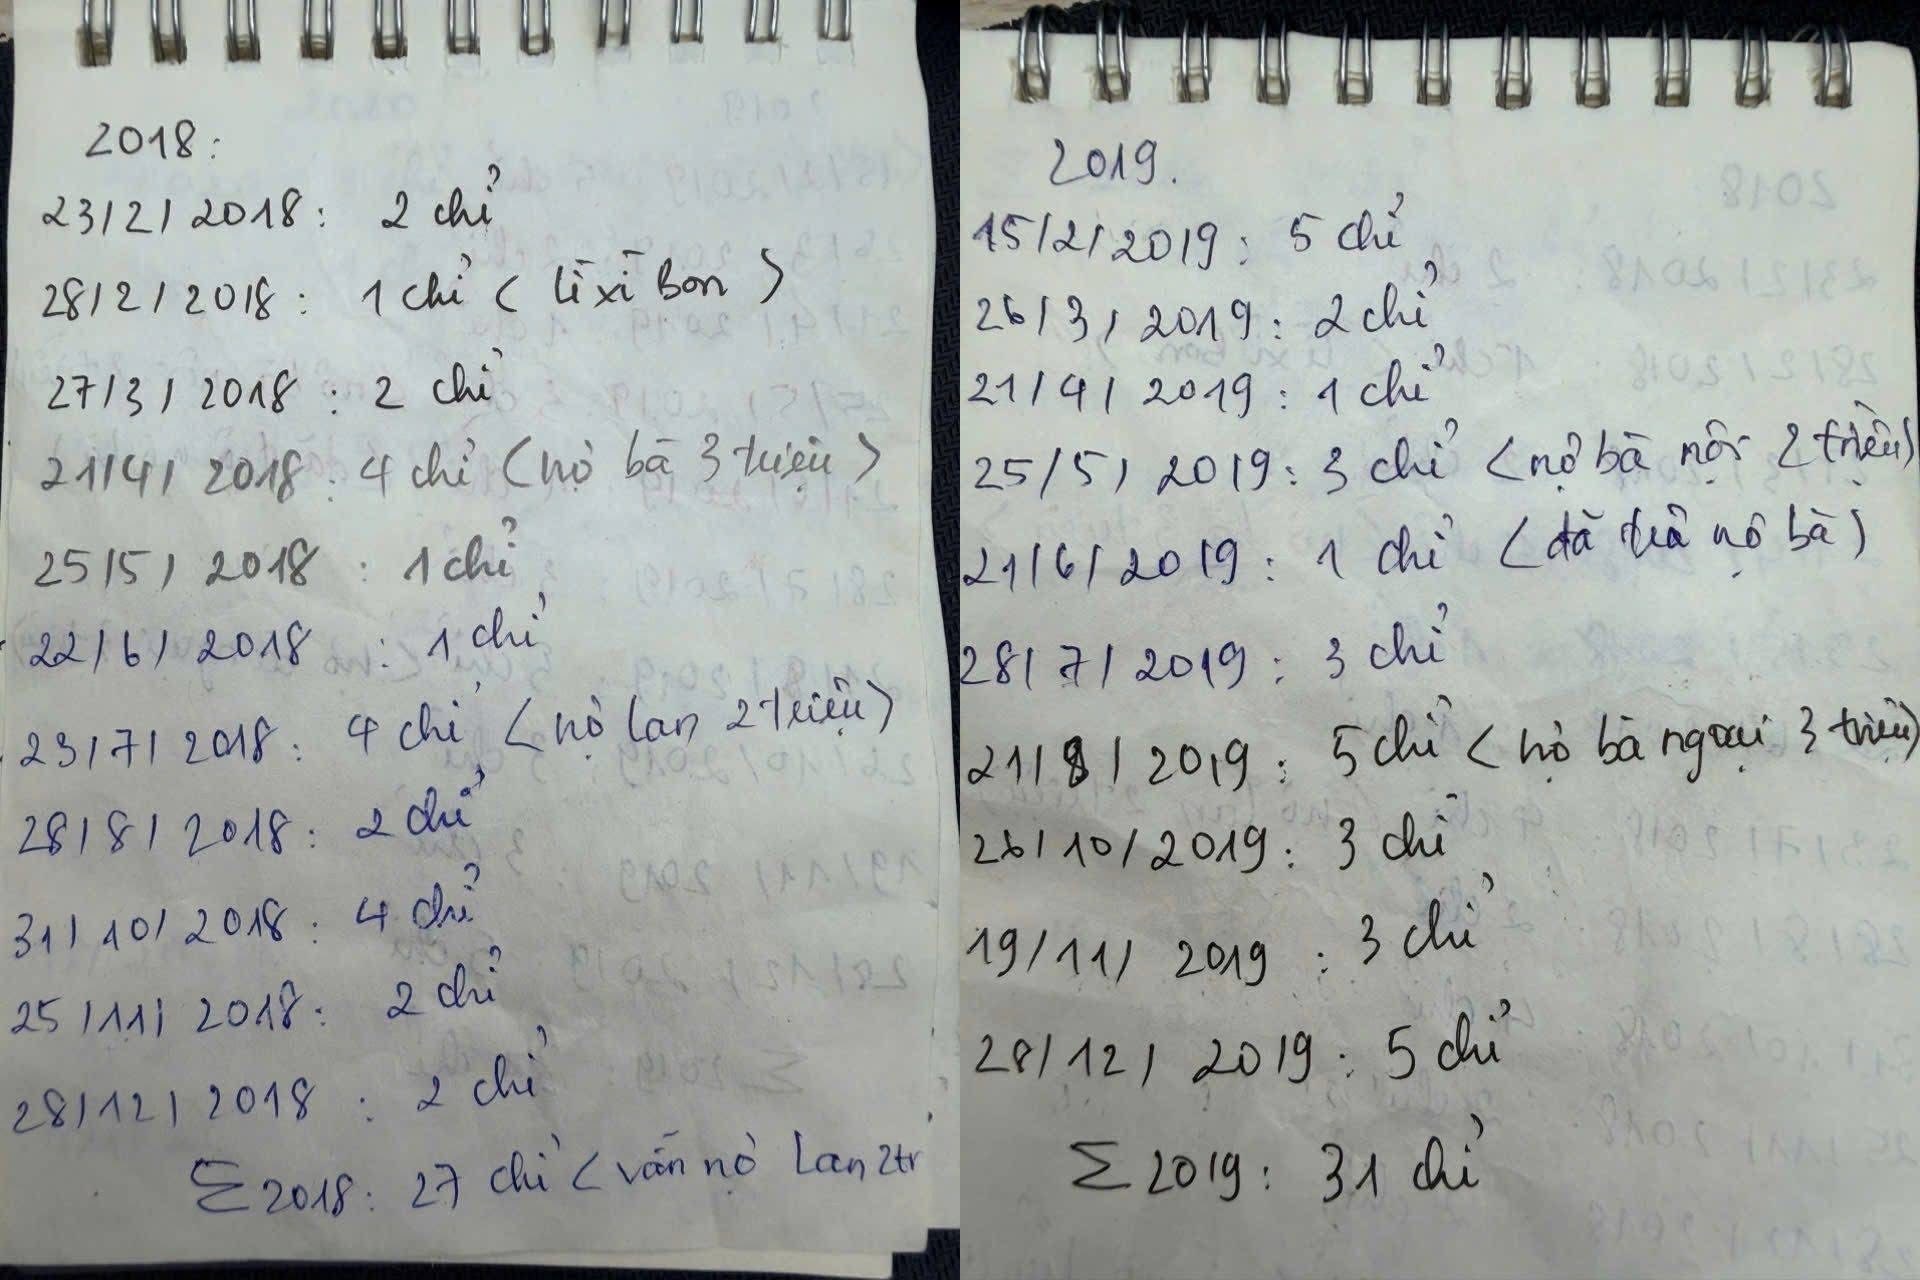 2018:
23/2/2018: 2 chỉ
28/2/2018: 1 chỉ (lì xì Bon)
27/3/2018: 2 chỉ
21/4/2018: 4 chỉ (nợ bà 3 triệu)
25/5/2018: 1 chỉ
22/6/2018: 1 chỉ
23/7/2018: 4 chỉ (nợ Lan 2 triệu)
28/8/2018: 2 chỉ
31/10/2018: 4 chỉ
25/11/2018: 2 chỉ
28/12/2018: 2 chỉ
Σ 2018: 27 chỉ (vẫn nợ Lan 2tr
2019.
15/2/2019: 5 chỉ
26/3/2019: 2 chỉ
21/4/2019: 1 chỉ
25/5/2019: 3 chỉ (nợ bà nội 2 triệu)
21/6/2019: 1 chỉ (đã trả nợ bà)
28/7/2019: 3 chỉ
21/8/2019: 5 chỉ (nợ bà ngoại 3 triệu)
26/10/2019: 3 chỉ
19/11/2019: 3 chỉ
28/12/2019: 5 chỉ
Σ 2019: 31 chỉ